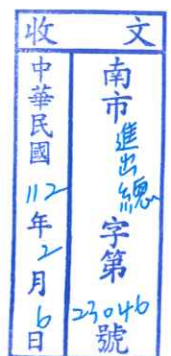 收文
南市進出總字第23046號
中華民國112年2月6日